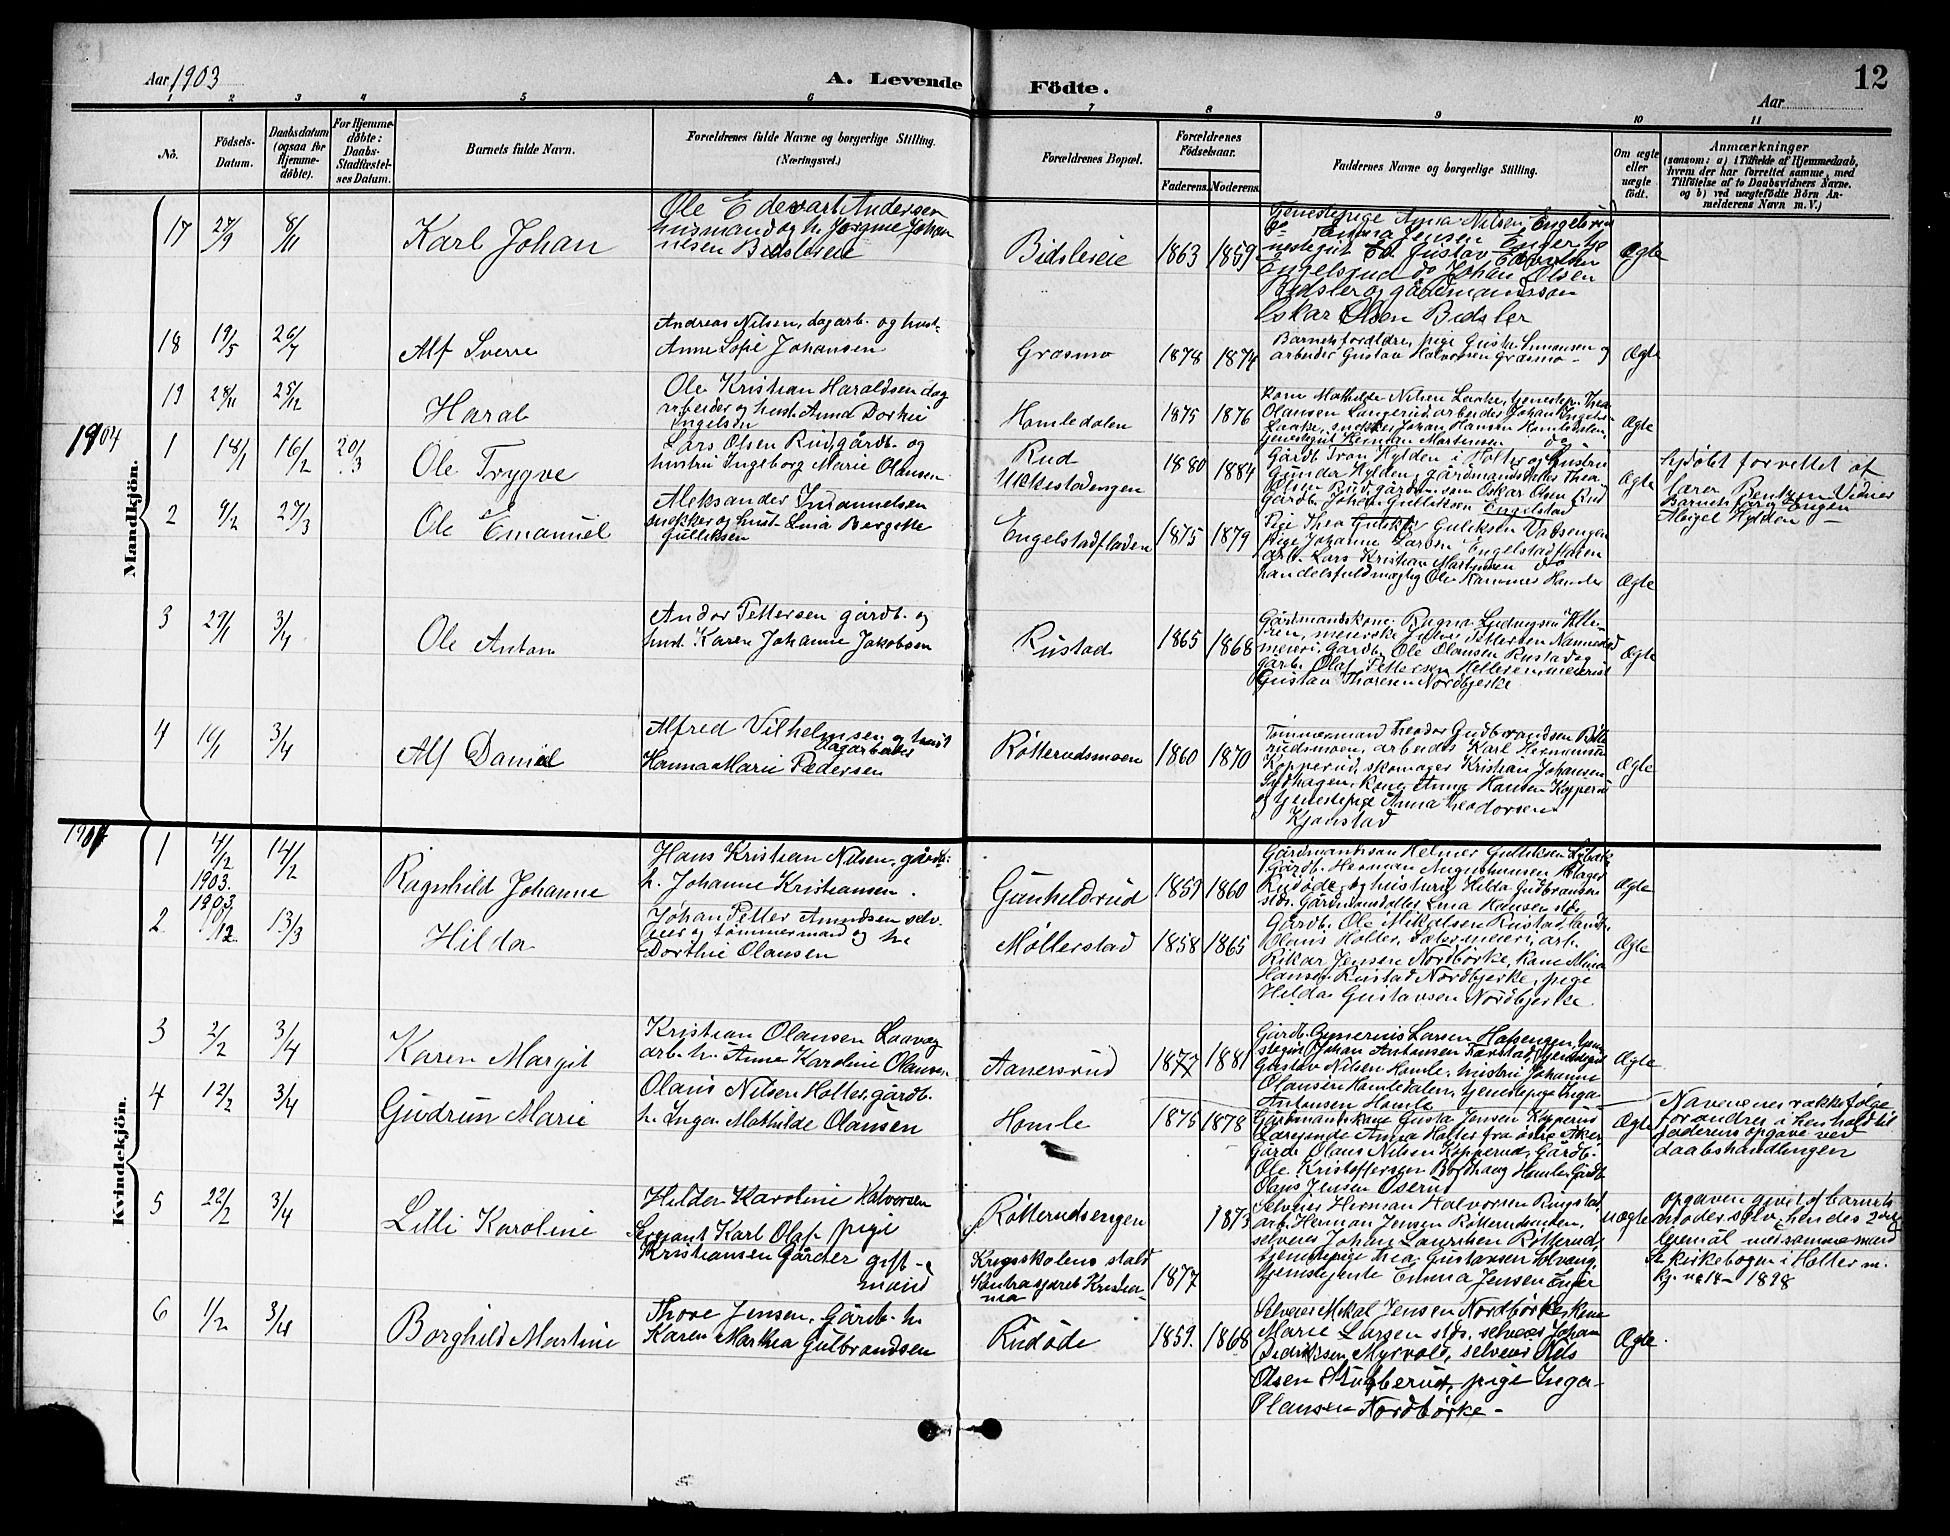 Aar 1903
A. Levende Födte.
12
Aar
1 2 3 4 5 6 7 8 9 10 11
No.
Födsels-Datum.
Daabsdatum (ogsaa for Hjemme-døbte).
For Hjemme-døbte: Daabs-Stadfæstel-ses Datum.
Barnets fulde Navn.
Forældrenes fulde Navne og borgerlige Stilling.
(Næringsvei.)
Forældrenes Bopæl.
Forældrenes Fødselsaar.
Faderens. Moderens.
Faddernes Navne og borgerlige Stilling.
Om ægte eller uægte født.
Anmærkninger
(saasom: a) i Tilfælde af Hjemmedaab, hvem der har forrettet samme, med Tilføielse af to Daabsvidners Navne. og b) ved uægtefödte Börn An-melderens Navn m. V.)
Mandkjön.
17 27/9 8/11 Karl Johan
Ole Edevart Andersen
husmand og h. Jørgine Johan
nesen Bidslereie
Bidslereie 1863 1859
Tjenestepige Anna Nilsen Engelsrud
Engelsrud do Johan Olsen
Bidsler og gårdmandssøn
Oskar Olsen Bidsler
Ægte
18 19/5 26/7 Alf Sverre
Andreas Nilsen, dagarb. og hust.
Anne Sofie Johansen
Græsmo 1878 1874
Barnets forældre, pige Gusta Simensen og
arbeider Gustav Halvorsen Græsmo -
Ægte
19 28/11 25/12 Haral
Ole Kristian Haraldsen dag
arbeider og hust. Anna Dorthea
Engelsen
Homledalen 1875 1876
Kone Mathilde Nilsen Laake, tjenestep. Thea
Olausen Langerud, arbeider Johan Engelsen
Laake, snekker Johan Hansen Homledalen,
tjenestegut Herman Martinsen do
Ægte
1904
1 18/1 16/2 20/3 Ole Trygve
Lars Olsen Rud, gårdb. og
hustru Ingeborg Marie Olausen
Rud
1880 1884
Gårdb. Iver Hylden i Holter og hustru
Gunder Hylden, gårdmandsdatter Thea
Olsen Rud, gårdm.søn Oskar Olsen Rud
Gårdb. Johan Gulliksen Engelstad
Ægte
hjdøbt forrettet af
Lærer Bentzen Vidner
Barnets farfar Engen
Abigel Hylden -
2 9/2 27/3 Ole Emanuel
Aleksander Immanuelsen
snekker og hust. Lina Bergette
Gulliksen
Engelstadfladen 1875 1879
Pige Thea Gulliksen
pige Johanne Larsen Engelstadfladen
arb. Lars Kristian Martinsen do
handelsfuldmægtig Ole Hammer Homler
Ægte
3 29/1 3/4 Ole Anton
Andor Pettersen gårdb. og
hust. Karen Johanne Jakobsen
Rustad 1865 1868
Gårdmandskone Ragna Ludvigsen Helle-
ren, meierske Pettersen Nannestad
meieri. Gårdb. Ole Olausen Rustad og
gårb. Olaf Pettersen Helleren, meierist
Gustav Thoresen Nordbjerke
Ægte
4 10/1 3/4 Alf Daniel
Alfred Vilhelmsen og hust
dagarbeider
Hanna Marie Pedersen
Røtterudsmoen 1860 1870
Tømmermand Theodor Gudbrandsen Røtte-
rudsmoen, arbeider Karl Hermansen
Kopperud, skomager Kristian Johansen
Sydhagen, kone Anna Hansen Kopperud
og tjenestepige Anna Theodorsen
Kjonstad
Ægte
Kvindekjön.
1904
1 4/2 14/2 Ragnhild Johanne
Hans Kristian Nilsen, gårdb.
h. Johanne Kristiansen.
Gunhildrud 1859 1860
Gårdmandssøn Helmer Gulliksen
Gårdb. Herman Augustinussen
Rudøde, og hustru Hilda Gudbransen
stds. Gårdmandsdatter Lina Hansen stds.
Ægte
1903.
1903
2 10/12 13/3 Hilda
Johan Petter Amundsen selv-
eier og tømmermand og h.
Dorthie Olausen
Møllerstad 1858 1865
Gårdb. Ole Mikkelsen Rustad,
Olaus Holter, Holter meieri, arb.
Rikar Jensen Nordbørke, kone Mina
Hansen Rustad Nordbjerke, pige
Hilda Gustavsen Nordbjerke
Ægte
3 2/2 3/4 Karen Margit
Kristian Olausen Laavag
arb. h. Anne Karoline Olausen
Aanersrud 1877 1881
Gårdb. Larsen Holsengen, tjene-
stegut Johan Antonsen Tærstad, tjenestegut
Gustav Nilsen Homle, hustru Johanne
Olausen Homledalen, tjenestepige Inga
Antonsen Homle
Ægte
4 12/2 3/4 Gudrun Marie
Olaus Nilsen Holter, gårdb.
h. Inga Mathilde Olausen
Homle 1875 1878
Gårdmandskone Gusta Jensen Kopperud
Lærerinde Anna Holter fra østre Aker
Gårdb. Olaus Nilsen Kopperud, Gårdb.
Ole Kristoffersen Homle, Gårdb.
Olaus Jensen Oserud
Ægte
Navnenes rækkefølge
forandret i henhold til
faderens opgave ved
daabshandlingen
5 22/2 3/4 Lilli Karoline
Hilda Karoline Halvorsen
pige
Sergeant Karl Olaf
Kristiansen Gårder gift
mand
Røtterudsengen 1873
Krigsskolens stald
1877
Selveier Herman Halvorsen Ringstad,
arb. Herman Jensen Røtterudsenden,
selveier Johan Lauritsen Røtterud,
tjenestepige Thea Gustavsen Solvang,
tjenestejente Emma Jensen Enger
uægte
Opgaven givet af barnets
moder selv, hendes 2det
leiermål med samme mand
Se kirkebogen i Holter m.
kj. no 18 - 1898
6 1/2 3/4 Borghild Martine
Thore Jensen, Gårdb. h.
Karen Marthea Gulbrandsen
Rudøde 1859. 1868
Selveier Mikal Jensen Nordbørke, kone
Marie Larsen stds, selveier Johan
Didriksen Myrvold, selveier Nils
Olsen Stubberud, pige Inga
Olausen Nordbørke -
Ægte.